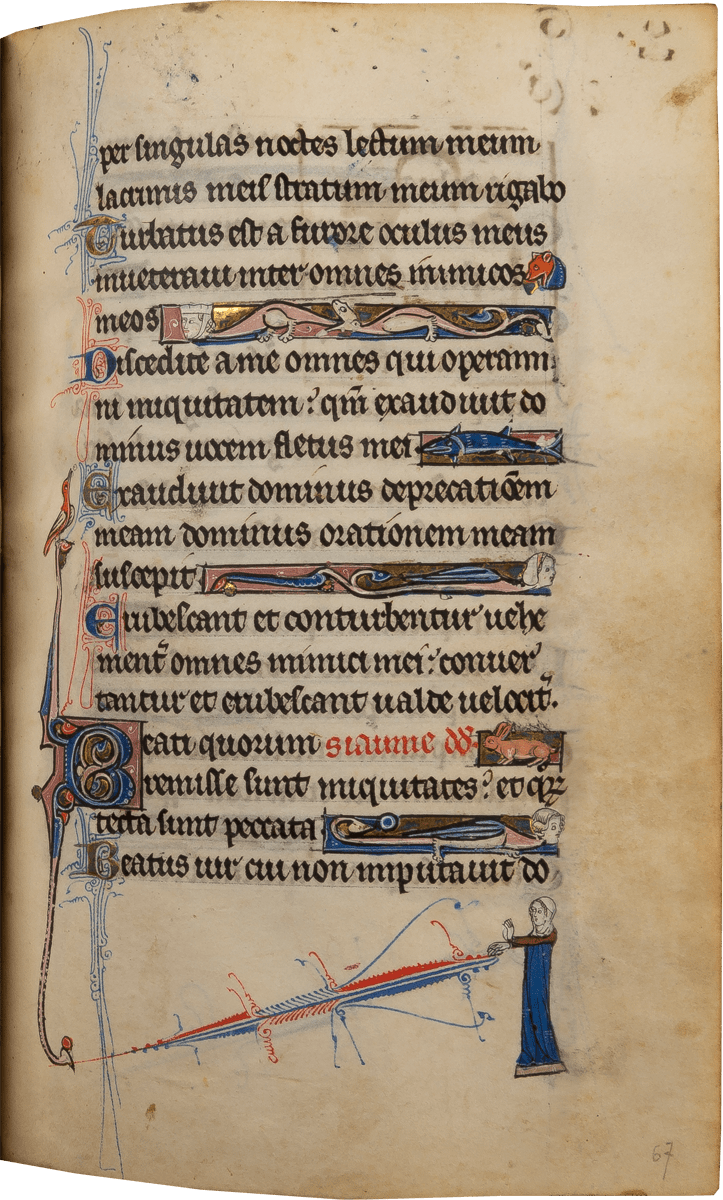 per singulas noctes lectum meum
lacrimis meis stratum meum rigabo
Turbatus est a furore oculus meus
inueteraui inter omnes inimicos
meos
Discedite a me omnes qui operami
ni iniquitatem? qm̄ exaudiuit do
minus uocem fletus mei
Exaudiuit dominus deprecatiōem
meam dominus orationem meam
suscepit
Erubescant et conturbentur uehe
ment᷑ omnes inimici mei: conuer
tantur et erubescant ualde uelocit᷑.
Beati quorum
remisse sunt iniquitates? et quoꝝ
tecta sunt peccata
Beatus uir cui non imputauit do
67